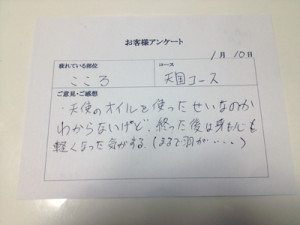 お客様アンケート
1月10日
疲れている部位
コース
こころ
天国コース
ご意見・ご感想
・天使のオイルを使ったせいなのか
わからないけど、終った後は身も心も
軽くなった気がする。(まるで羽が・・・。)